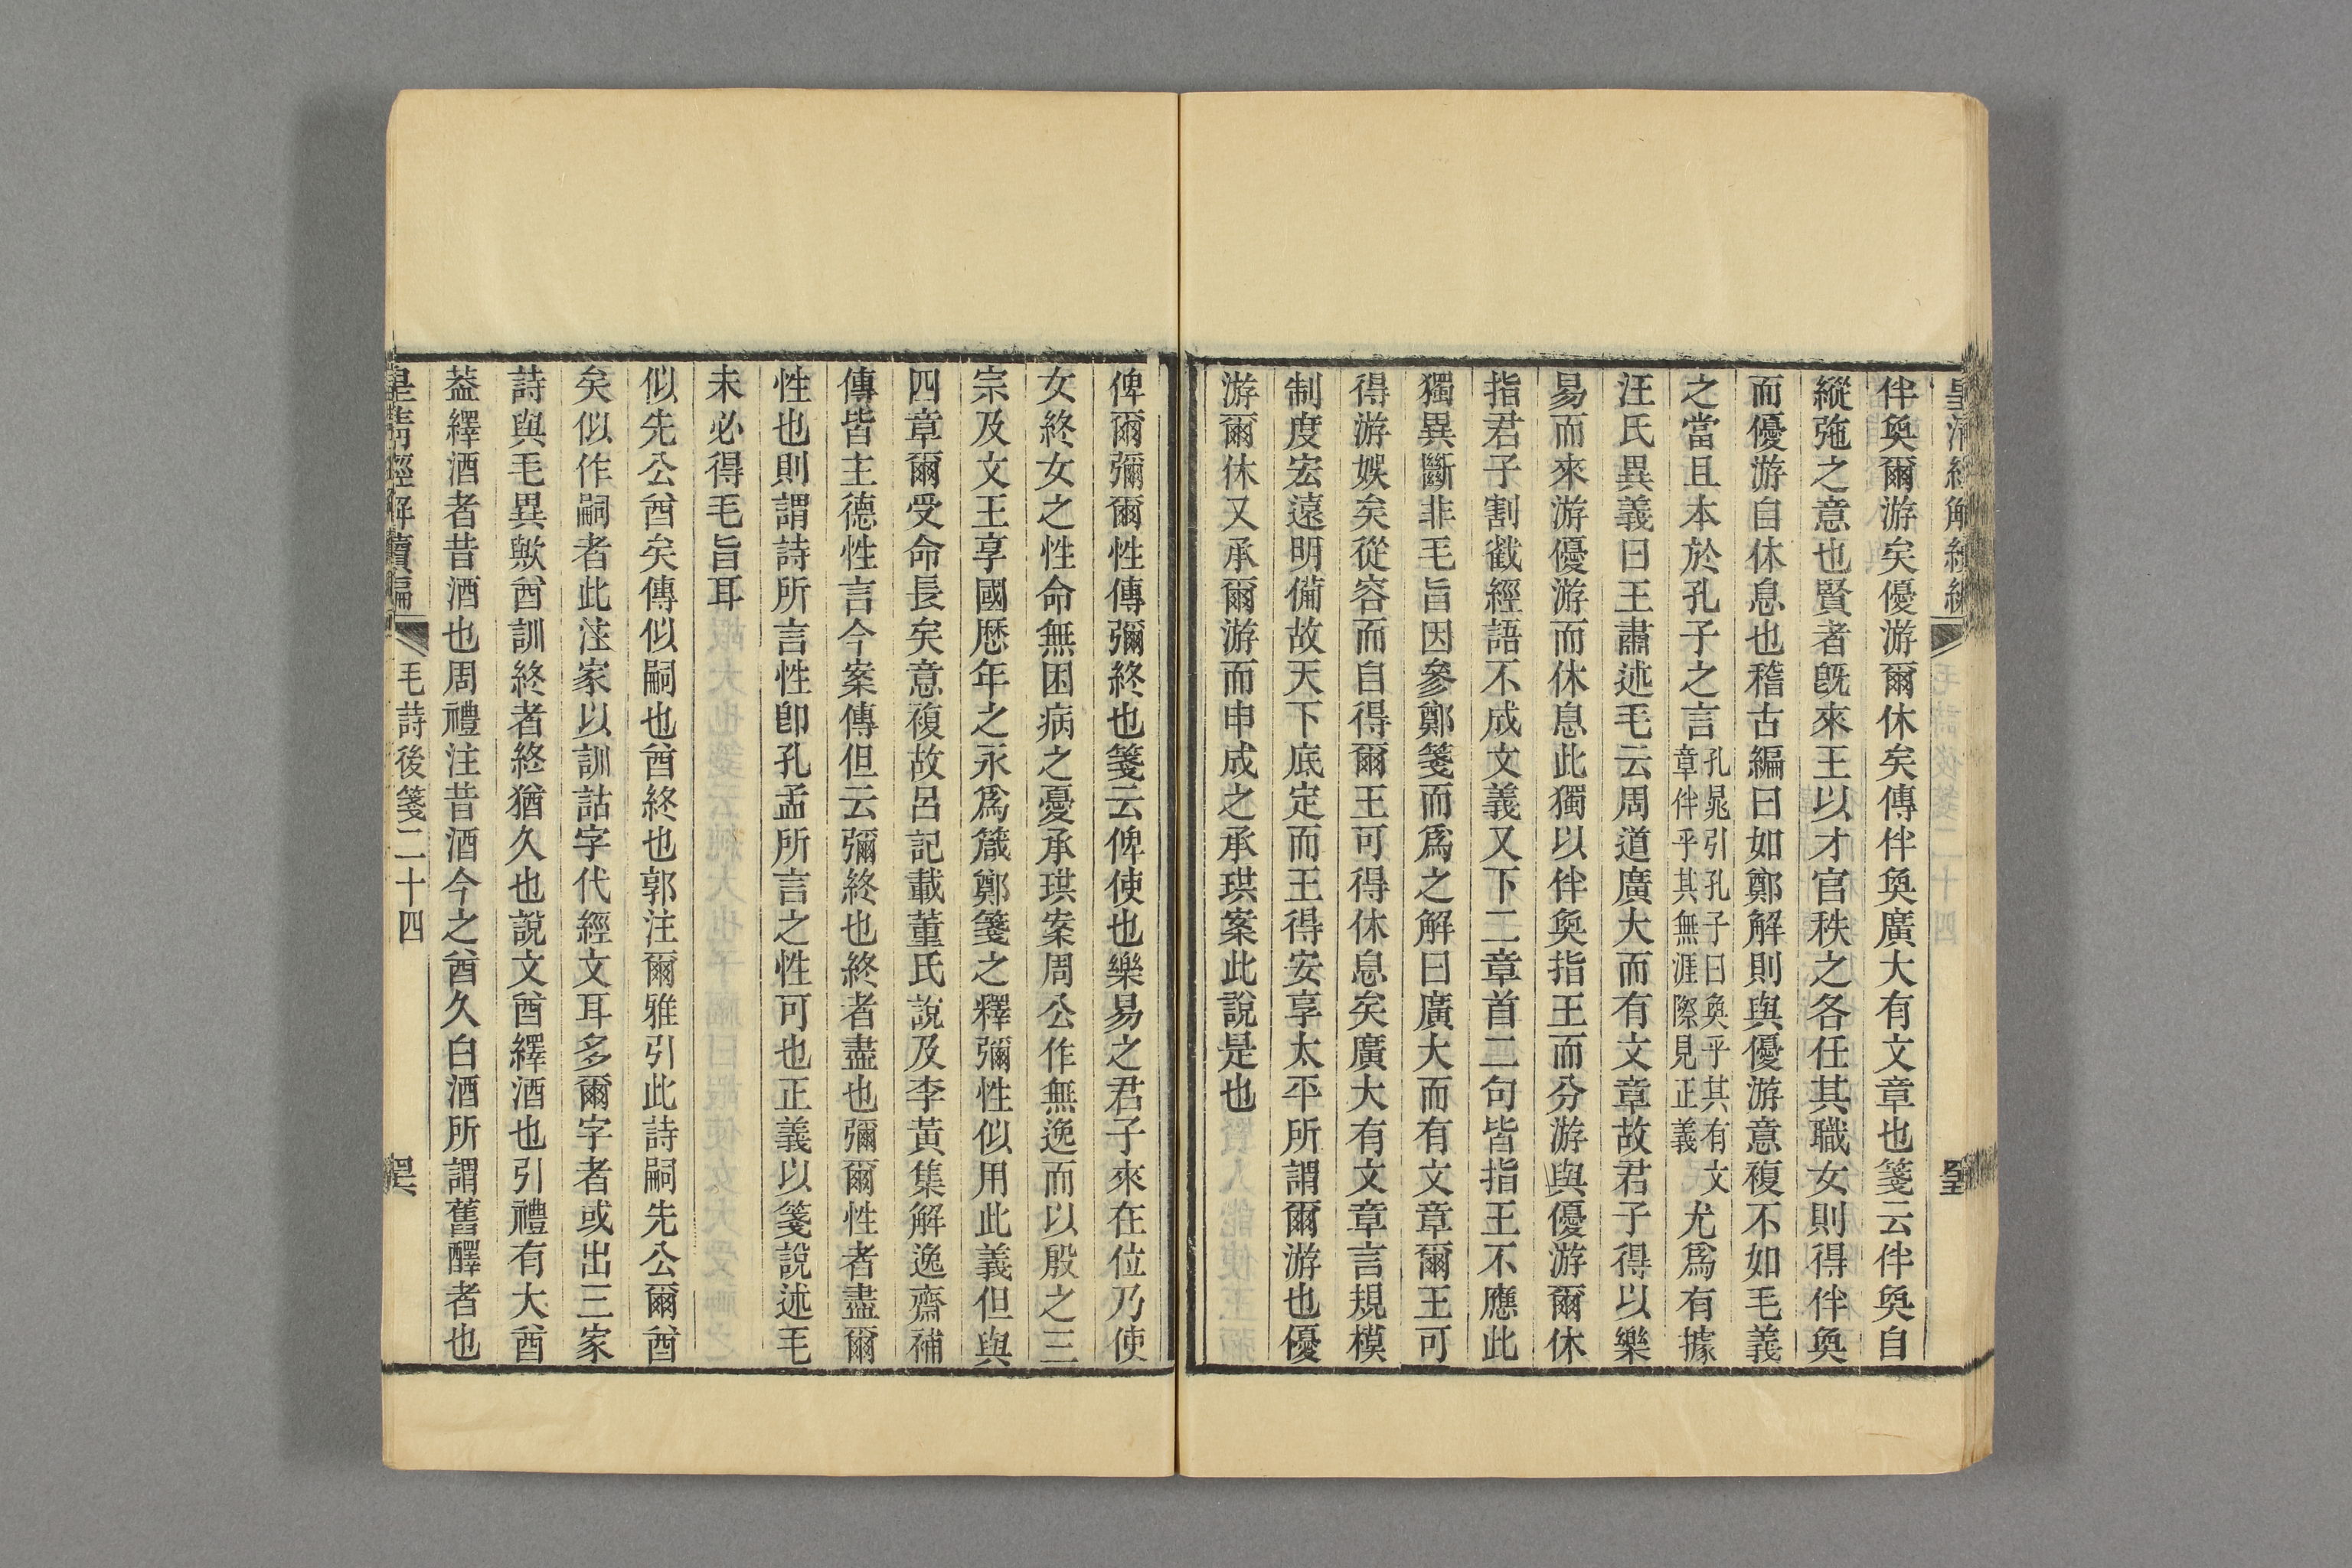 伴奐爾游矣優游爾休矣傳伴奐廣大有文章也箋云伴奐自
縱弛之意也賢者旣來王以才官秩之各任其職女則得伴奐
而優游自休息也稽古編曰如鄭解則與優游意複不如毛義
之當且本於孔子之言孔晁引孔子曰奐乎其有文章伴乎其無涯際見正義尤爲有據
汪氏異義曰王肅述毛云周道廣大而有文章故君子得以樂
易而來游優游而休息此獨以伴奐指王而分游與優游爾休
指君子割截經語不成文義又下二章首二句皆指王不應此
獨異斷非毛旨因參鄭箋而爲之解曰廣大而有文章爾王可
得游娛矣從容而自得爾王可得休息矣廣大有文章言規模
制度宏遠明備故天下底定而王得安享太平所謂爾游也優
游爾休又承爾游而申成之承珙案此說是也
俾爾彌爾性傳彌終也箋云俾使也樂易之君子來在位乃使
女終女之性命無困病之憂承珙案周公作無逸而以殷之三
宗及文王享國歷年之永爲箴鄭箋之釋彌性似用此義但與
四章爾受命長矣意複故呂記載董氏說及李黃集解逸齋補
傳皆主德性言今案傳但云彌終也終者盡也彌爾性者盡爾
性也則謂詩所言性卽孔孟所言之性可也正義以箋說述毛
未必得毛旨耳
似先公酋矣傳似嗣也酋終也郭注爾雅引此詩嗣先公爾酋
矣似作嗣者此注家以訓詁字代經文耳多爾字者或出三家
詩與毛異歟酋訓終者終猶久也說文酋繹酒也引禮有大酋
葢繹酒者昔酒也周禮注昔酒今之酋久白酒所謂舊醳者也
皇清經解續編
毛詩後箋二十四